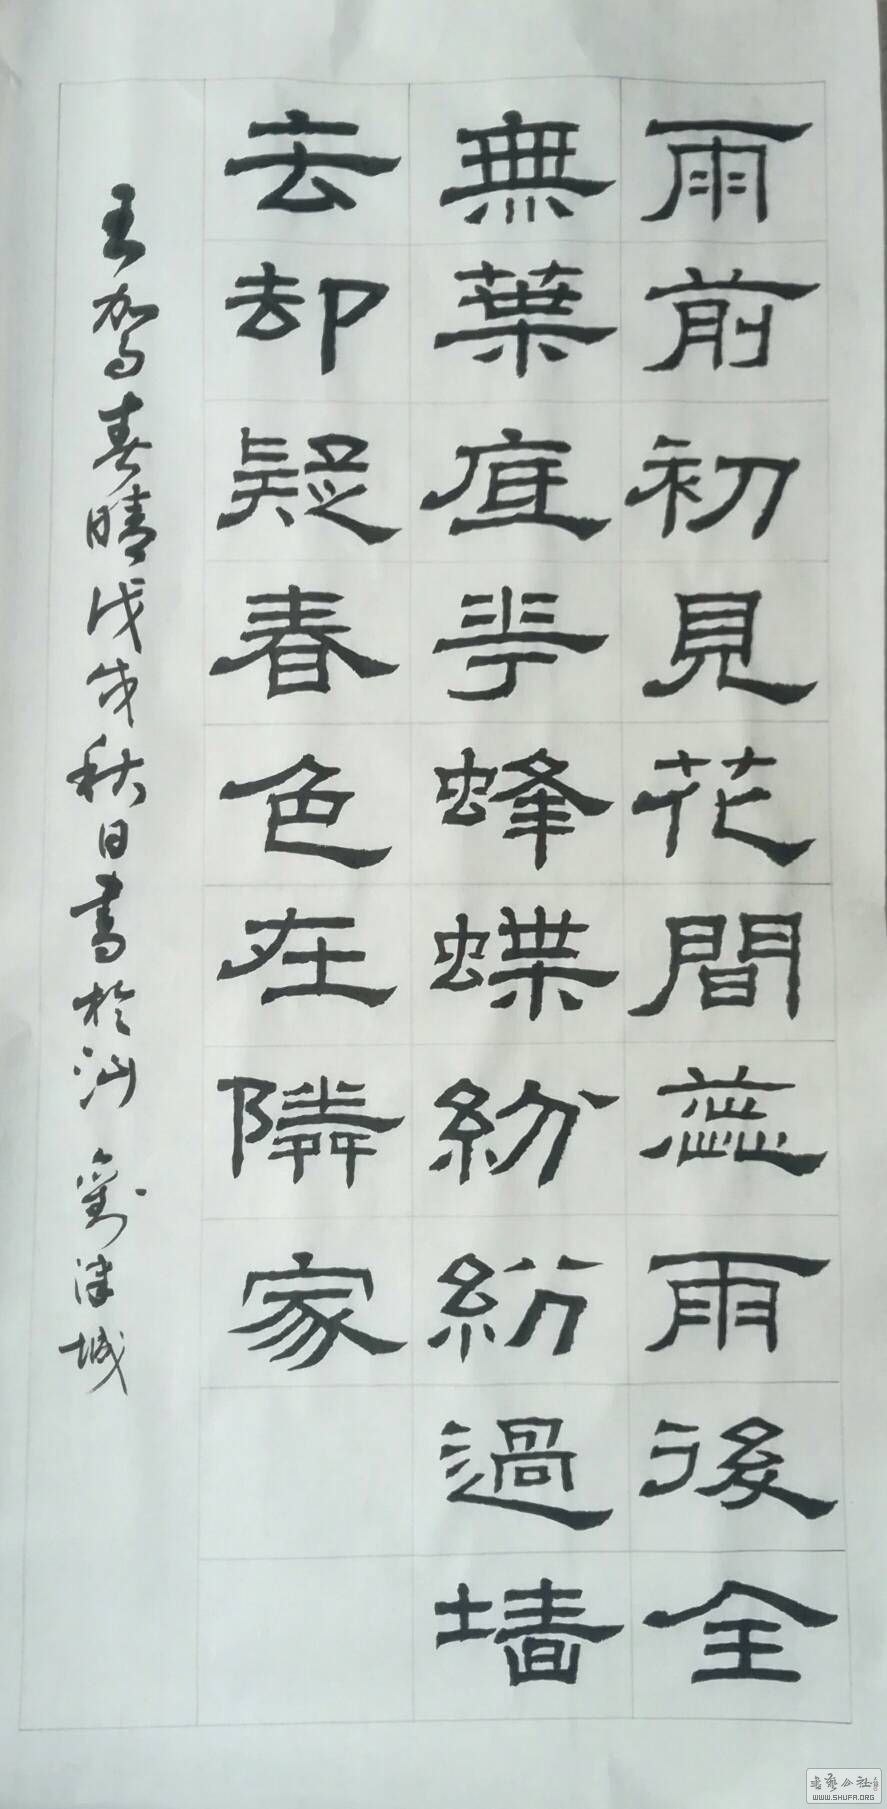 雨前初見花間蕊雨後全
無葉底花蜂蝶紛紛過墙
去却疑春色在隣家
王駕春晴戊戌秋日書於汕 劉津城
書藝公社
WWW.SHUFA.ORG